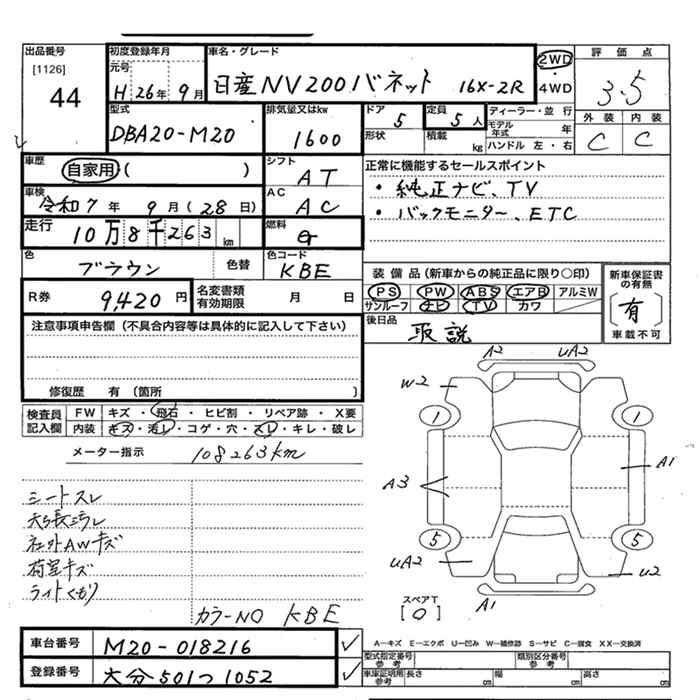 出品番号 初度登録年月 車名・グレード 評価点
[1126] 元号
44 H 26年 9月 日産NV200バネット 16X-2R 2WD ・ 4WD 3.5
型式 排気量又はkw ドア 5 定員 5人 ディーラー・並行 外装 内装
DBA20-M20 1600 形状 積載 kg モデル年式 年 C C
ハンドル 左・右
車歴 自家用 ( ) シフト AT 正常に機能するセールスポイント
車検 令和7年 9月 (28日) AC AC ・純正ナビ、TV
走行 10万8千263km 燃料 G ・バックモニター、ETC
色 ブラウン 色替 色コード KBE
R券 9,420円 名変書類有効期限 月 日
装備品(新車からの純正品に限り○印) 新車保証書の有無
PS PW ABS エアB アルミW [有]
サンルーフ ナビ TV カワ 車載不可
注意事項申告欄(不具合内容等は具体的に記入して下さい) 後日品 取説
修復歴 有 (箇所 )
検査員記入欄 FW キズ・飛石・ヒビ割・リペア跡・X要
内装 キズ・汚レ・コゲ・穴・スレ・キレ・破レ
メーター指示 108263km
シートスレ
社外AWキズ
荷室キズ
ライトくもり
カラーNO KBE
A2 UA2
W2
1 1
A3 A1
5 5
UA2 U2
A1
スペアT
[0]
A―キズ E―エクボ U―凹み W―補修跡 S―サビ C―腐食 XX―交換済
車台番号 M20-018216 ✓
登録番号 大分501つ1052 ✓
型式指定番号 参考 類別区分番号 参考
車庫証明用 参考 長さ cm 幅 cm 高さ cm